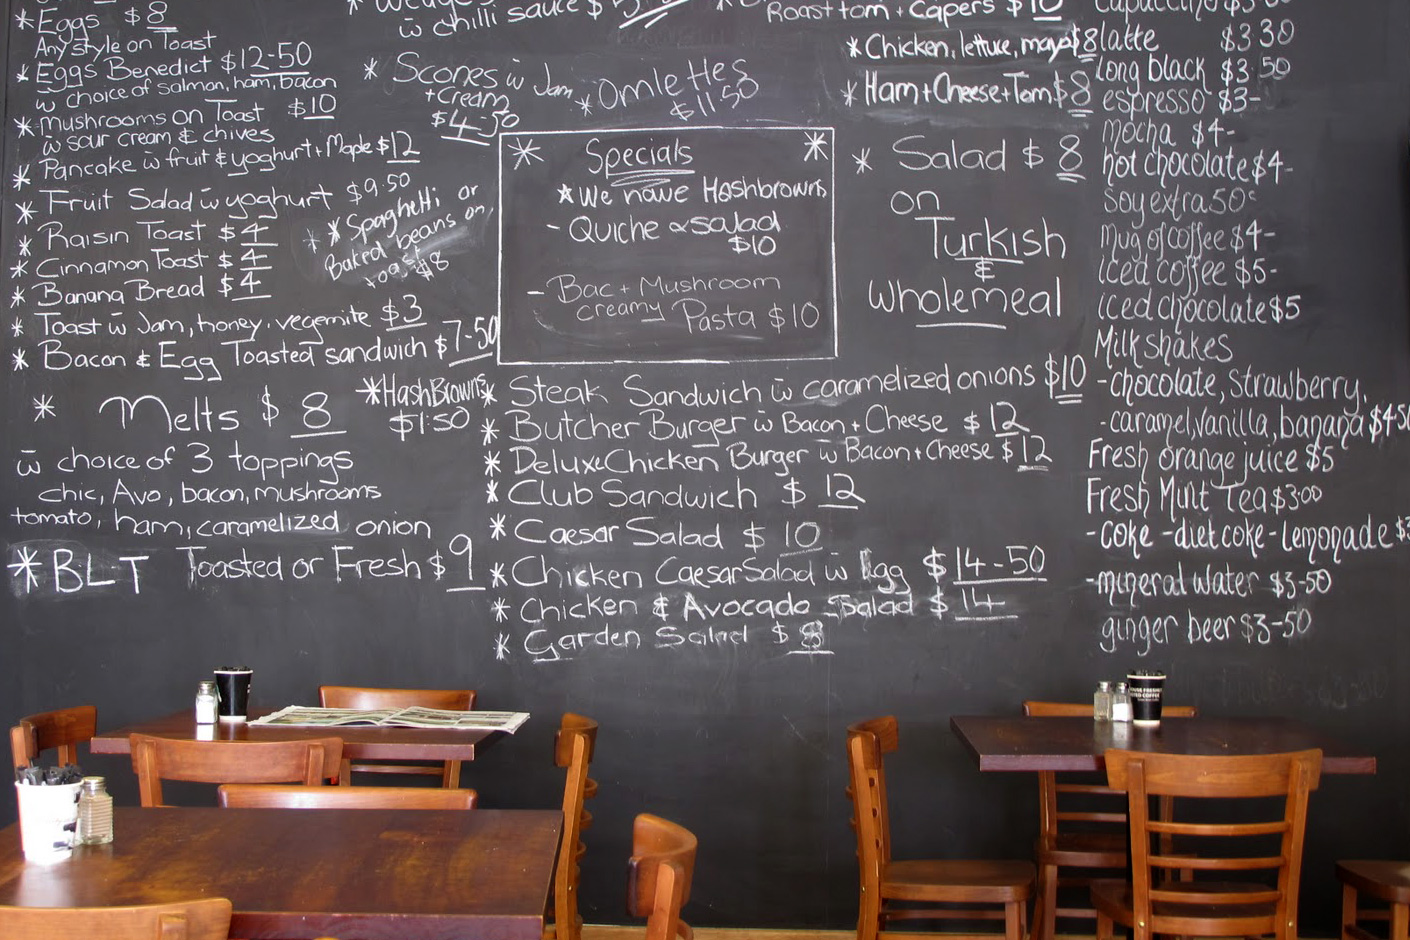 * Eggs $8
Any style on Toast
* Eggs Benedict $12-50
w̄ choice of salmon, ham, bacon
* Mushrooms on Toast $10
w̄ sour cream & chives
* Pancake w̄ fruit & yoghurt + Maple $12
* Fruit Salad w̄ yoghurt $9.50
* Raisin Toast $4
* Cinnamon Toast $4
* Banana Bread $4
* Toast w̄ Jam, honey, vegemite $3
* Bacon & Egg Toasted sandwich $7-50
* Spaghetti or
Baked beans on
toast $8
* Melts $8
w̄ choice of 3 toppings
chic, Avo, bacon, mushrooms
tomato, ham, caramelized onion
* HashBrowns
$1.50
* BLT Toasted or Fresh $9
w̄ chilli sauce $
* Scones w̄ Jam
+ Cream
$4-50
* Omlettes
$11.50
* Specials *
* We have Hashbrowns
- Quiche & salad
$10
- Bac + Mushroom
creamy Pasta $10
* Steak Sandwich w̄ caramelized onions $10
* Butcher Burger w̄ Bacon + Cheese $12
* Deluxe Chicken Burger w̄ Bacon + Cheese $12
* Club Sandwich $12
* Caesar Salad $10
* Chicken Caesar Salad w̄ Egg $14-50
* Chicken & Avocado Salad $14
* Garden Salad $8
Roast tom + Capers $10
* Chicken, lettuce, mayo $8
* Ham + Cheese + Tom $8
* Salad $8
on
Turkish
&
wholemeal
Capuccino
latte $3 30
long black $3.50
espresso $3-
mocha $4-
hot chocolate $4-
Soy extra 50c
Mug of coffee $4-
iced coffee $5-
iced chocolate $5
Milkshakes
- chocolate, Strawberry,
- caramel, vanilla, banana $4-50
Fresh orange juice $5
Fresh Mint Tea $3.00
- coke - diet coke - Lemonade $3
- mineral water $3-50
ginger beer $3-50